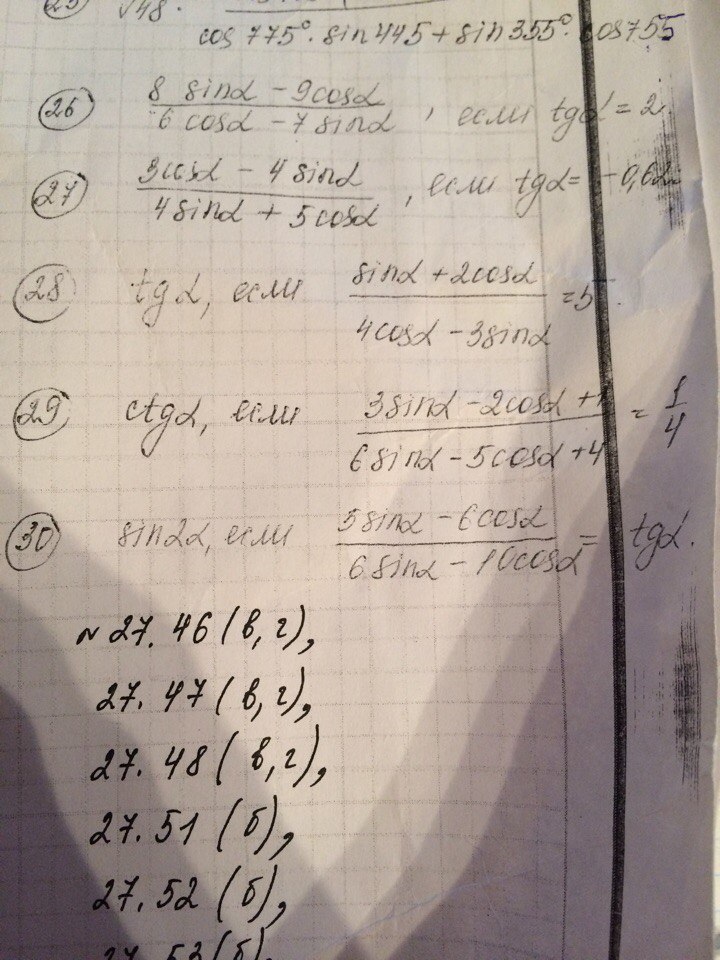 25 √48 ·
cos 775° · sin 445 + sin 355° · cos 755
26 8 sinα - 9cosα / 6 cosα - 7 sinα , если tgα = 2
27 3cosα - 4 sinα / 4 sinα + 5 cosα , если tgα =
28 tgα, если sinα + 2cosα / 4cosα - 3sinα = 5
29 ctgα, если 3sinα - 2cosα + 1 / 6 sinα - 5cosα + 4 = 1/4
30 sin2α, если 5sinα - 6cosα / 6 sinα - 10cosα = tgα.
~ 27. 46 (в, г),
27. 47 (в, г),
27. 48 (в, г),
27. 51 (б),
27. 52 (б),
27. 53 (б).